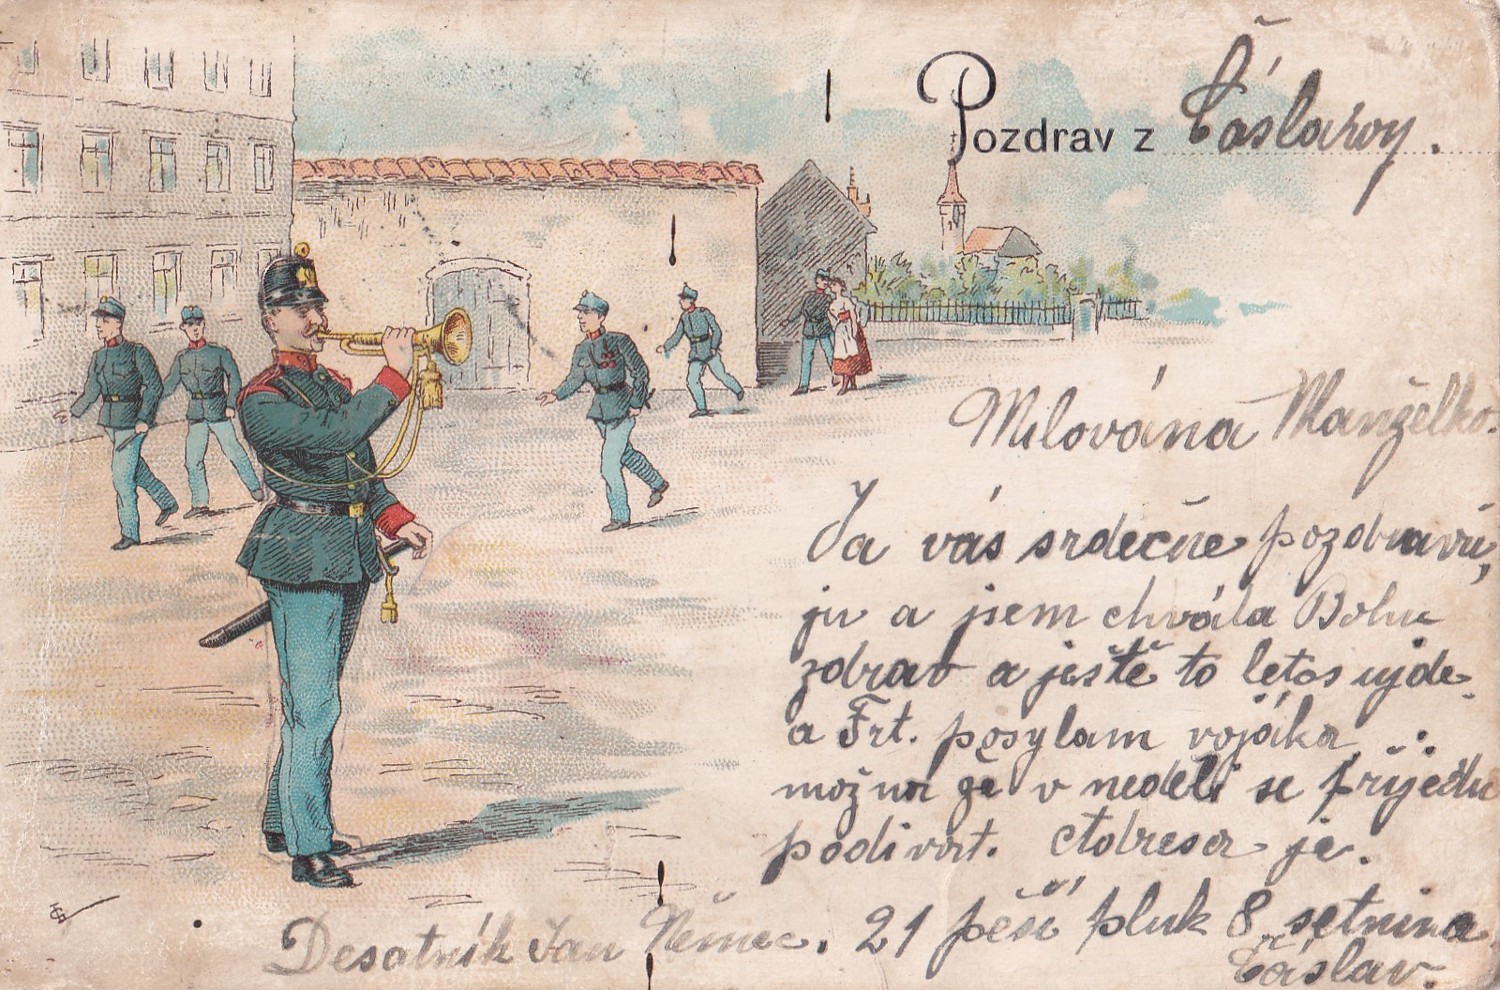 Pozdrav z Čáslavy.
Milována Manželko.
Ja vás srdečne pozdravu,
ju a jsem chvála Bohu
zdrav a ještě to letos ujde
a Frt. posylam vojáka
možna že v neděli se přijedu
podivat. Adresa je.
Desatník Jan Němec. 21 pěší pluk 8. setnina
Čáslav.